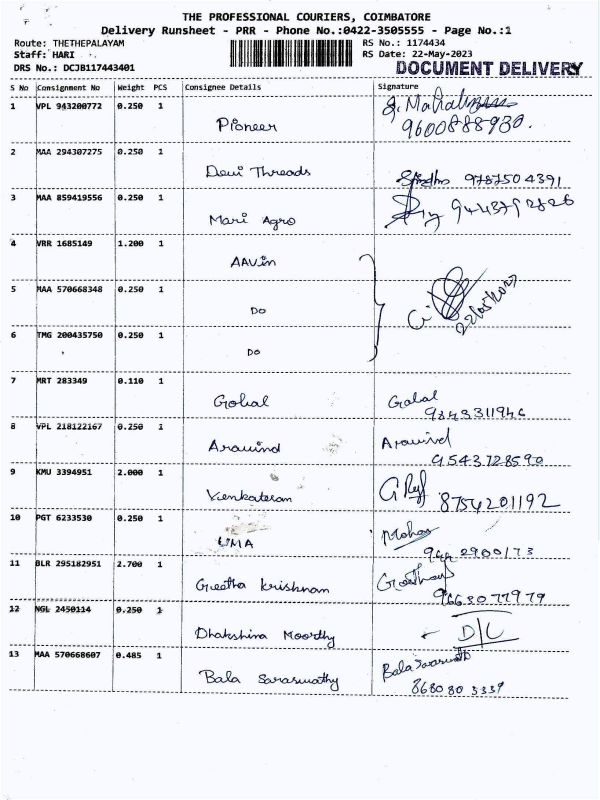 THE PROFESSIONAL COURIERS, COIMBATORE
Delivery Runsheet - PRR - Phone No.:0422-3505555 - Page No.:1
Route: THETHEPALAYAM RS No.: 1174434
Staff: HARI RS Date: 22-May-2023
DRS No.: DCJB117443401 DOCUMENT DELIVERY
S No Consignment No Weight PCS Consignee Details Signature
1 VPL 943200772 0.250 1
Pioneer 9600888930.
2 MAA 294307275 0.250 1
Devi Threads 9787504391
3 MAA 859419556 0.250 1
Mari Agro
4 VRR 1685149 1.200 1
AAVin
5 MAA 570668348 0.250 1
Do 22/05/2023
6 TMG 200435750 0.250 1
Do
7 MRT 283349 0.110 1
Gokal Gokal
9843311946
8 VPL 218122167 0.250 1
Aravind Aravind
9543728590
9 KMU 3394951 2.000 1
Venkatesan 8754201192
10 PGT 6233530 0.250 1
UMA Mohan
11 BLR 295182951 2.700 1
Geetha Krishnan
9663077979
12 NGL 2450114 0.250 1
Dhakshina Moorthy D/L
13 MAA 570668607 0.485 1
Bala Saraswathy Bala Saraswathy
8680803339